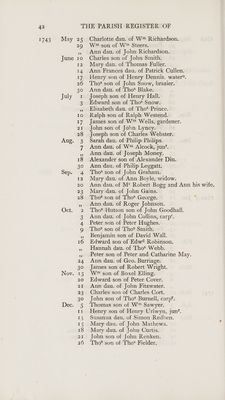 42 THE PARISH REGISTER OF
1743 May 25 Charlotte dau. of Wm Richardson.
29 Wm son of Wm Steers.
„ Ann dau. of John Richardson.
June 10 Charles son of John Smith.
12 Mary dau. of Thomas Fuller.
14 Ann Frances dau. of Patrick Cullen.
17 Henry son of Henry Dennis. waterⁿ.
26 Thoˢ son of John Snow, brazier.
30 Ann dau. of Thoˢ Blake.
July 1 Joseph son of Henry Hall.
3 Edward son of Thoˢ Snow.
„ Elizabeth dau. of Thoˢ Prince.
10 Ralph son of Ralph Westend.
17 James son of Wm Wells, gardener.
21 John son of John Lyney.
28 Joseph son of Charles Webster.
Aug. 3 Sarah dau. of Philip Philips.
7 Ann dau. of Wm Alcock, junʳ.
„ Ann dau. of Joseph Money.
18 Alexander son of Alexander Din.
30 Ann dau. of Philip Leggatt.
Sep. 4 Thoˢ son of John Graham.
12 Mary dau. of Ann Boyle, widow.
20 Ann dau. of Mr Robert Bogg and Ann his wife.
23 Mary dau. of John Gains.
28 Thoˢ son of Thoˢ George.
„ Ann dau. of Roger Johnson.
Oct. 2 Thoˢ Hutton son of John Goodhall.
3 Ann dau. of John Collins, carpʳ.
4 Peter son of Peter Hughes.
9 Thoˢ son of Thoˢ Smith.
„ Benjamin son of David Wall.
16 Edward son of Edwᵈ Robinson.
„ Hannah dau. of Thoˢ Webb.
„ Peter son of Peter and Catharine May.
24 Ann dau. of Geo. Burriage.
30 James son of Robert Wright.
Nov. 15 Wm son of Boxel Elling.
20 Edward son of Peter Cover.
21 Ann dau. of John Fitzwater.
23 Charles son of Charles Cort.
30 John son of Thoˢ Burnell, carpʳ.
Dec. 3 Thomas son of Wm Sawyer.
11 Henry son of Henry Uriwyn, junʳ.
13 Susanna dau. of Simon Redven.
15 Mary dau. of John Mathews.
18 Mary dau. of John Curtis.
21 John son of John Renken.
26 Thoˢ son of Thoˢ Fielder.